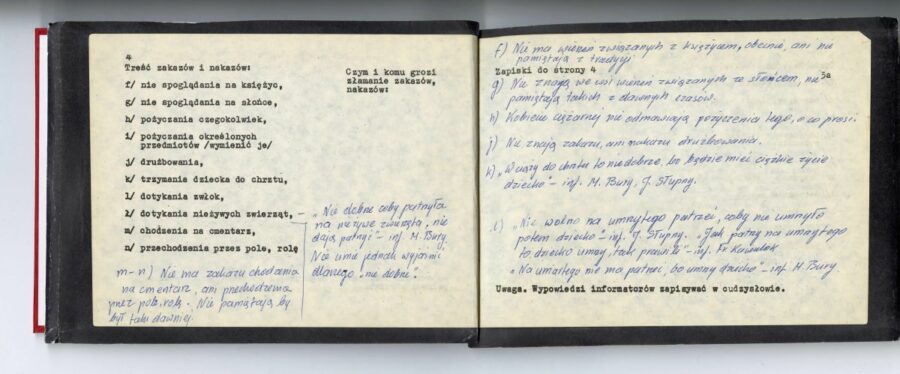 4
Treść zakazów i nakazów:
Czym i komu grozi
złamanie zakazów,
nakazów:
f/ nie spoglądania na księżyc,
g/ nie spoglądania na słońce,
h/ pożyczania czegokolwiek,
i/ pożyczania określonych
przedmiotów /wymienić je/
j/ drużbowania,
k/ trzymania dziecka do chrztu,
l/ dotykania zwłok,
ł/ dotykania nieżywych zwierząt, -
m/ chodzenia na cmentarz,
n/ przechodzenia przez pole, rolę
„Nie dobre coby patrzyła
na nieżywe zwierzęta, nie
dają patrzyć" - inf. M. Bury
Nie umie jednak wyjaśnić
dlaczego „nie dobre".
m-n) Nie ma zakazu chodzenia
na cmentarz, ani przechodzenia
przez pole, rolę. Nie pamiętają by
był taki dawniej.
f) Nie ma wierzeń związanych z księżycem, obecnie, ani nie
pamiętają z tradycji
Zapiski do strony 4
5a
g) Nie znają we wsi wierzeń związanych ze słońcem, nie
pamiętają takich z dawnych czasów.
h) Kobiecie ciężarnej nie odmawiają pożyczenia tego, o co prosi.
j) Nie znają zakazu, ani nakazu drużbowania.
k) „W ciąży do chrztu to niedobrze, bo będzie mieć ciężkie życie
dziecko" - inf. M. Bury, J. Słupny.
l) „Nie wolno na umrzytego patrzeć, coby nie umrzyło
potem dziecko" - inf. J. Słupny. „Jak patrzy na umrzytego
to dziecko umrzy, tak prawili" - inf. Fr.
„Na umarłego nie ma patrzeć, bo umrzy dziecko" - inf. M. Bury
Uwaga. Wypowiedzi informatorów zapisywać w cudzysłowie.